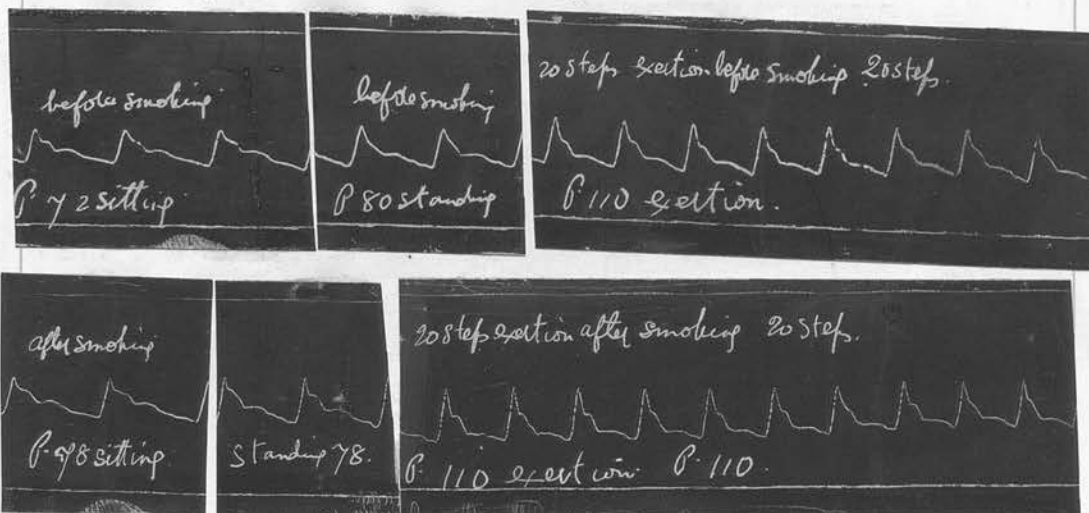 before smoking
P 72 sitting
before smoking
P 80 standing
20 steps exertion before smoking 20 steps.
P. 110 exertion.
after smoking
P. sitting
standing 78.
20 steps exertion after smoking 20 steps.
P. 110 exertion P. 110.